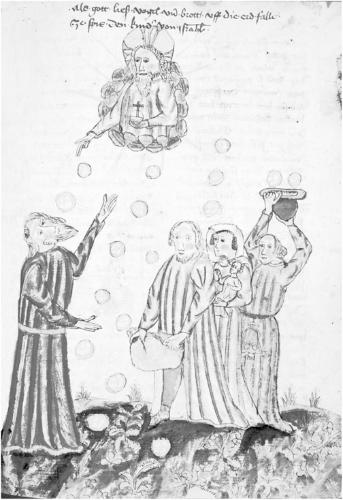 Als gott ließ vogel und brott uff die erd fallen
ze spis den kind von israhel